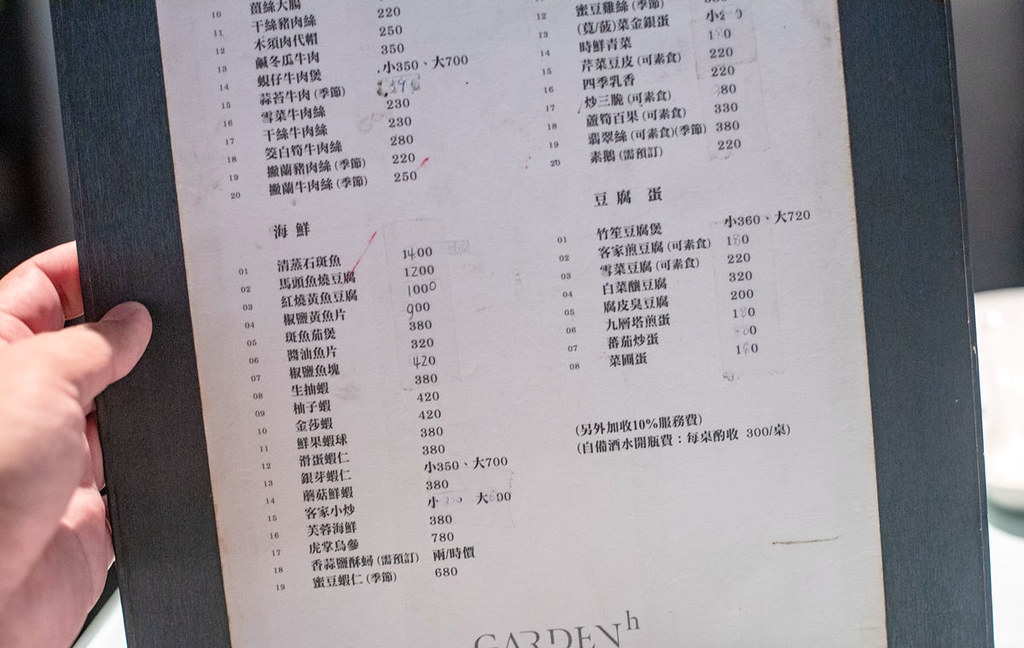 10 薑絲大腸 220
11 干絲豬肉絲 250
12 木須肉代帽 350
13 鹹冬瓜牛肉 小350、大700
14 蜆仔牛肉煲
15 蒜苔牛肉 (季節) 230
16 雪菜牛肉絲 230
17 干絲牛肉絲 280
18 筊白筍牛肉絲 220
19 撇蘭豬肉絲 (季節) 250
20 撇蘭牛肉絲 (季節)
海鮮
01 清蒸石斑魚 1400
02 馬頭魚燒豆腐 1200
03 紅燒黃魚豆腐 1000
04 椒鹽黃魚片 900
05 斑魚茄煲 380
06 醬油魚片 320
07 椒鹽魚塊 420
08 生抽蝦 380
09 柚子蝦 420
10 金莎蝦 420
11 鮮果蝦球 380
12 滑蛋蝦仁 380
13 銀芽蝦仁 小350、大700
14 蘑菇鮮蝦 380
15 客家小炒 小 大
16 芙蓉海鮮 380
17 虎掌烏參 780
18 香蒜鹽酥蟳 (需預訂) 兩/時價
19 蜜豆蝦仁 (季節) 680
蜜豆雞絲 (季節)
12 (莧/菠)菜金銀蛋 小
13 時鮮青菜
14 芹菜豆皮 (可素食) 220
15 四季乳香 220
16 炒三脆 (可素食)
17 蘆筍百果 (可素食) 330
18 翡翠絲 (可素食)(季節) 380
19 素鵝 (需預訂) 220
20
豆腐 蛋
01 竹笙豆腐煲 小360、大720
02 客家煎豆腐 (可素食)
03 雪菜豆腐 (可素食) 220
04 白菜釀豆腐 320
05 腐皮臭豆腐 200
06 九層塔煎蛋
07 蕃茄炒蛋
08 菜圃蛋
(另外加收10%服務費)
(自備酒水開瓶費：每桌酌收 300/桌)
GARDEN h